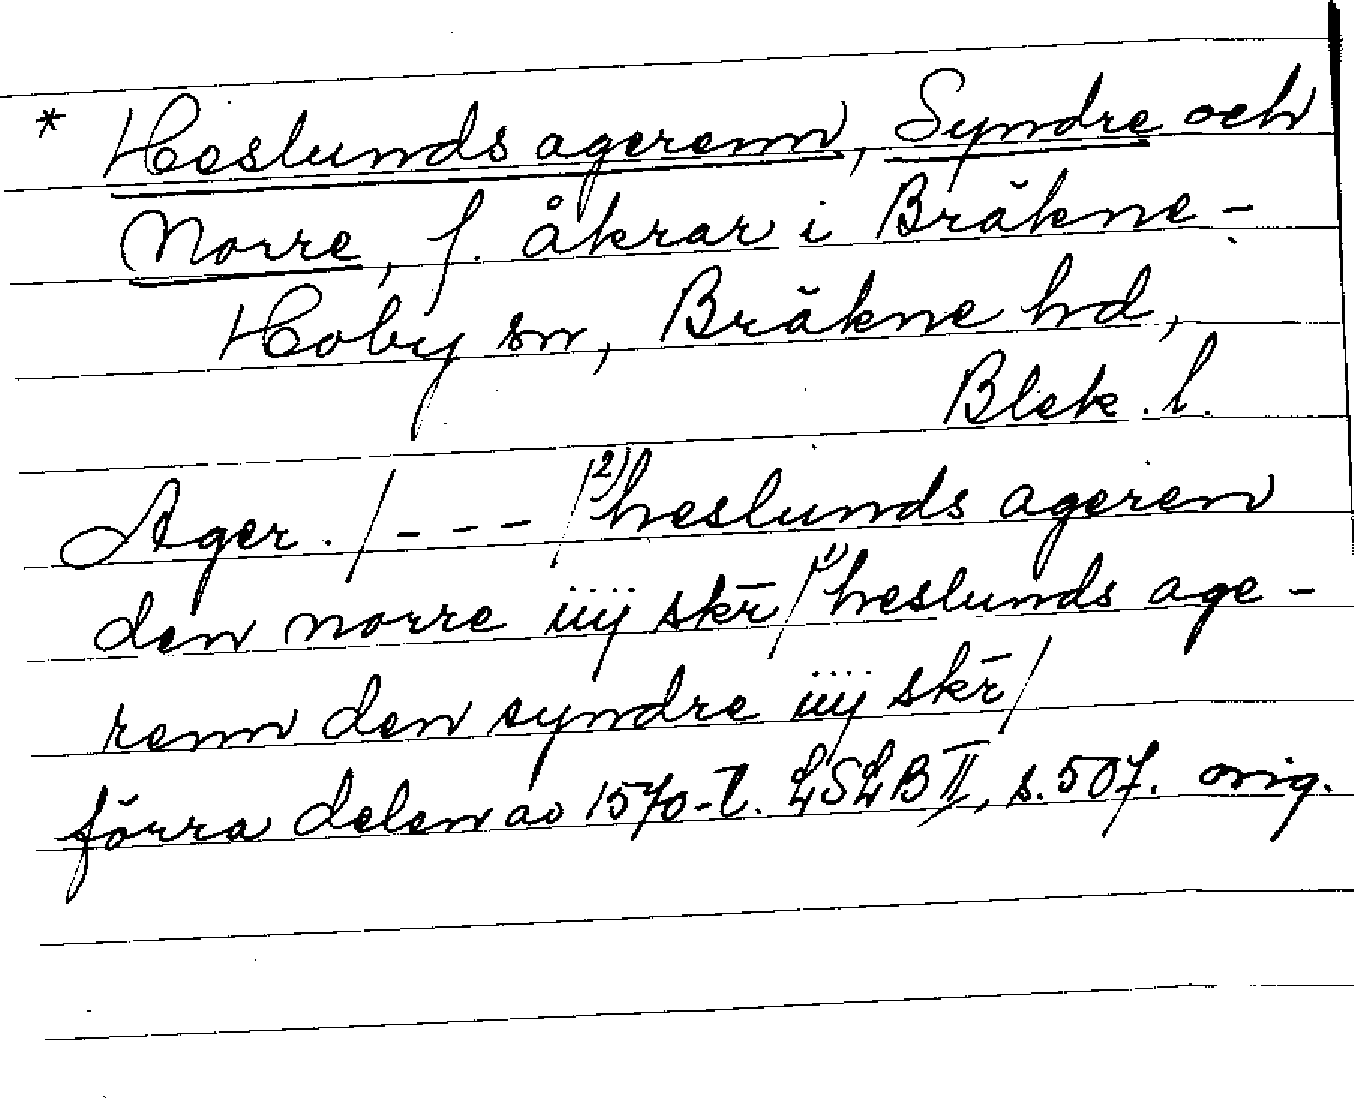 * Heslunds agerenn, Syndre och
Norre, f. åkrar i Bräkne-
Hoby sn, Bräkne hd,
Blek. l.
Ager. /---/ 2) heslunds ageren
den norre iiij skr̄ / 1) heslunds age-
renn den syndre iiij skr̄ /
förra delen av 1570-t. LSLB II, s. 507. orig.